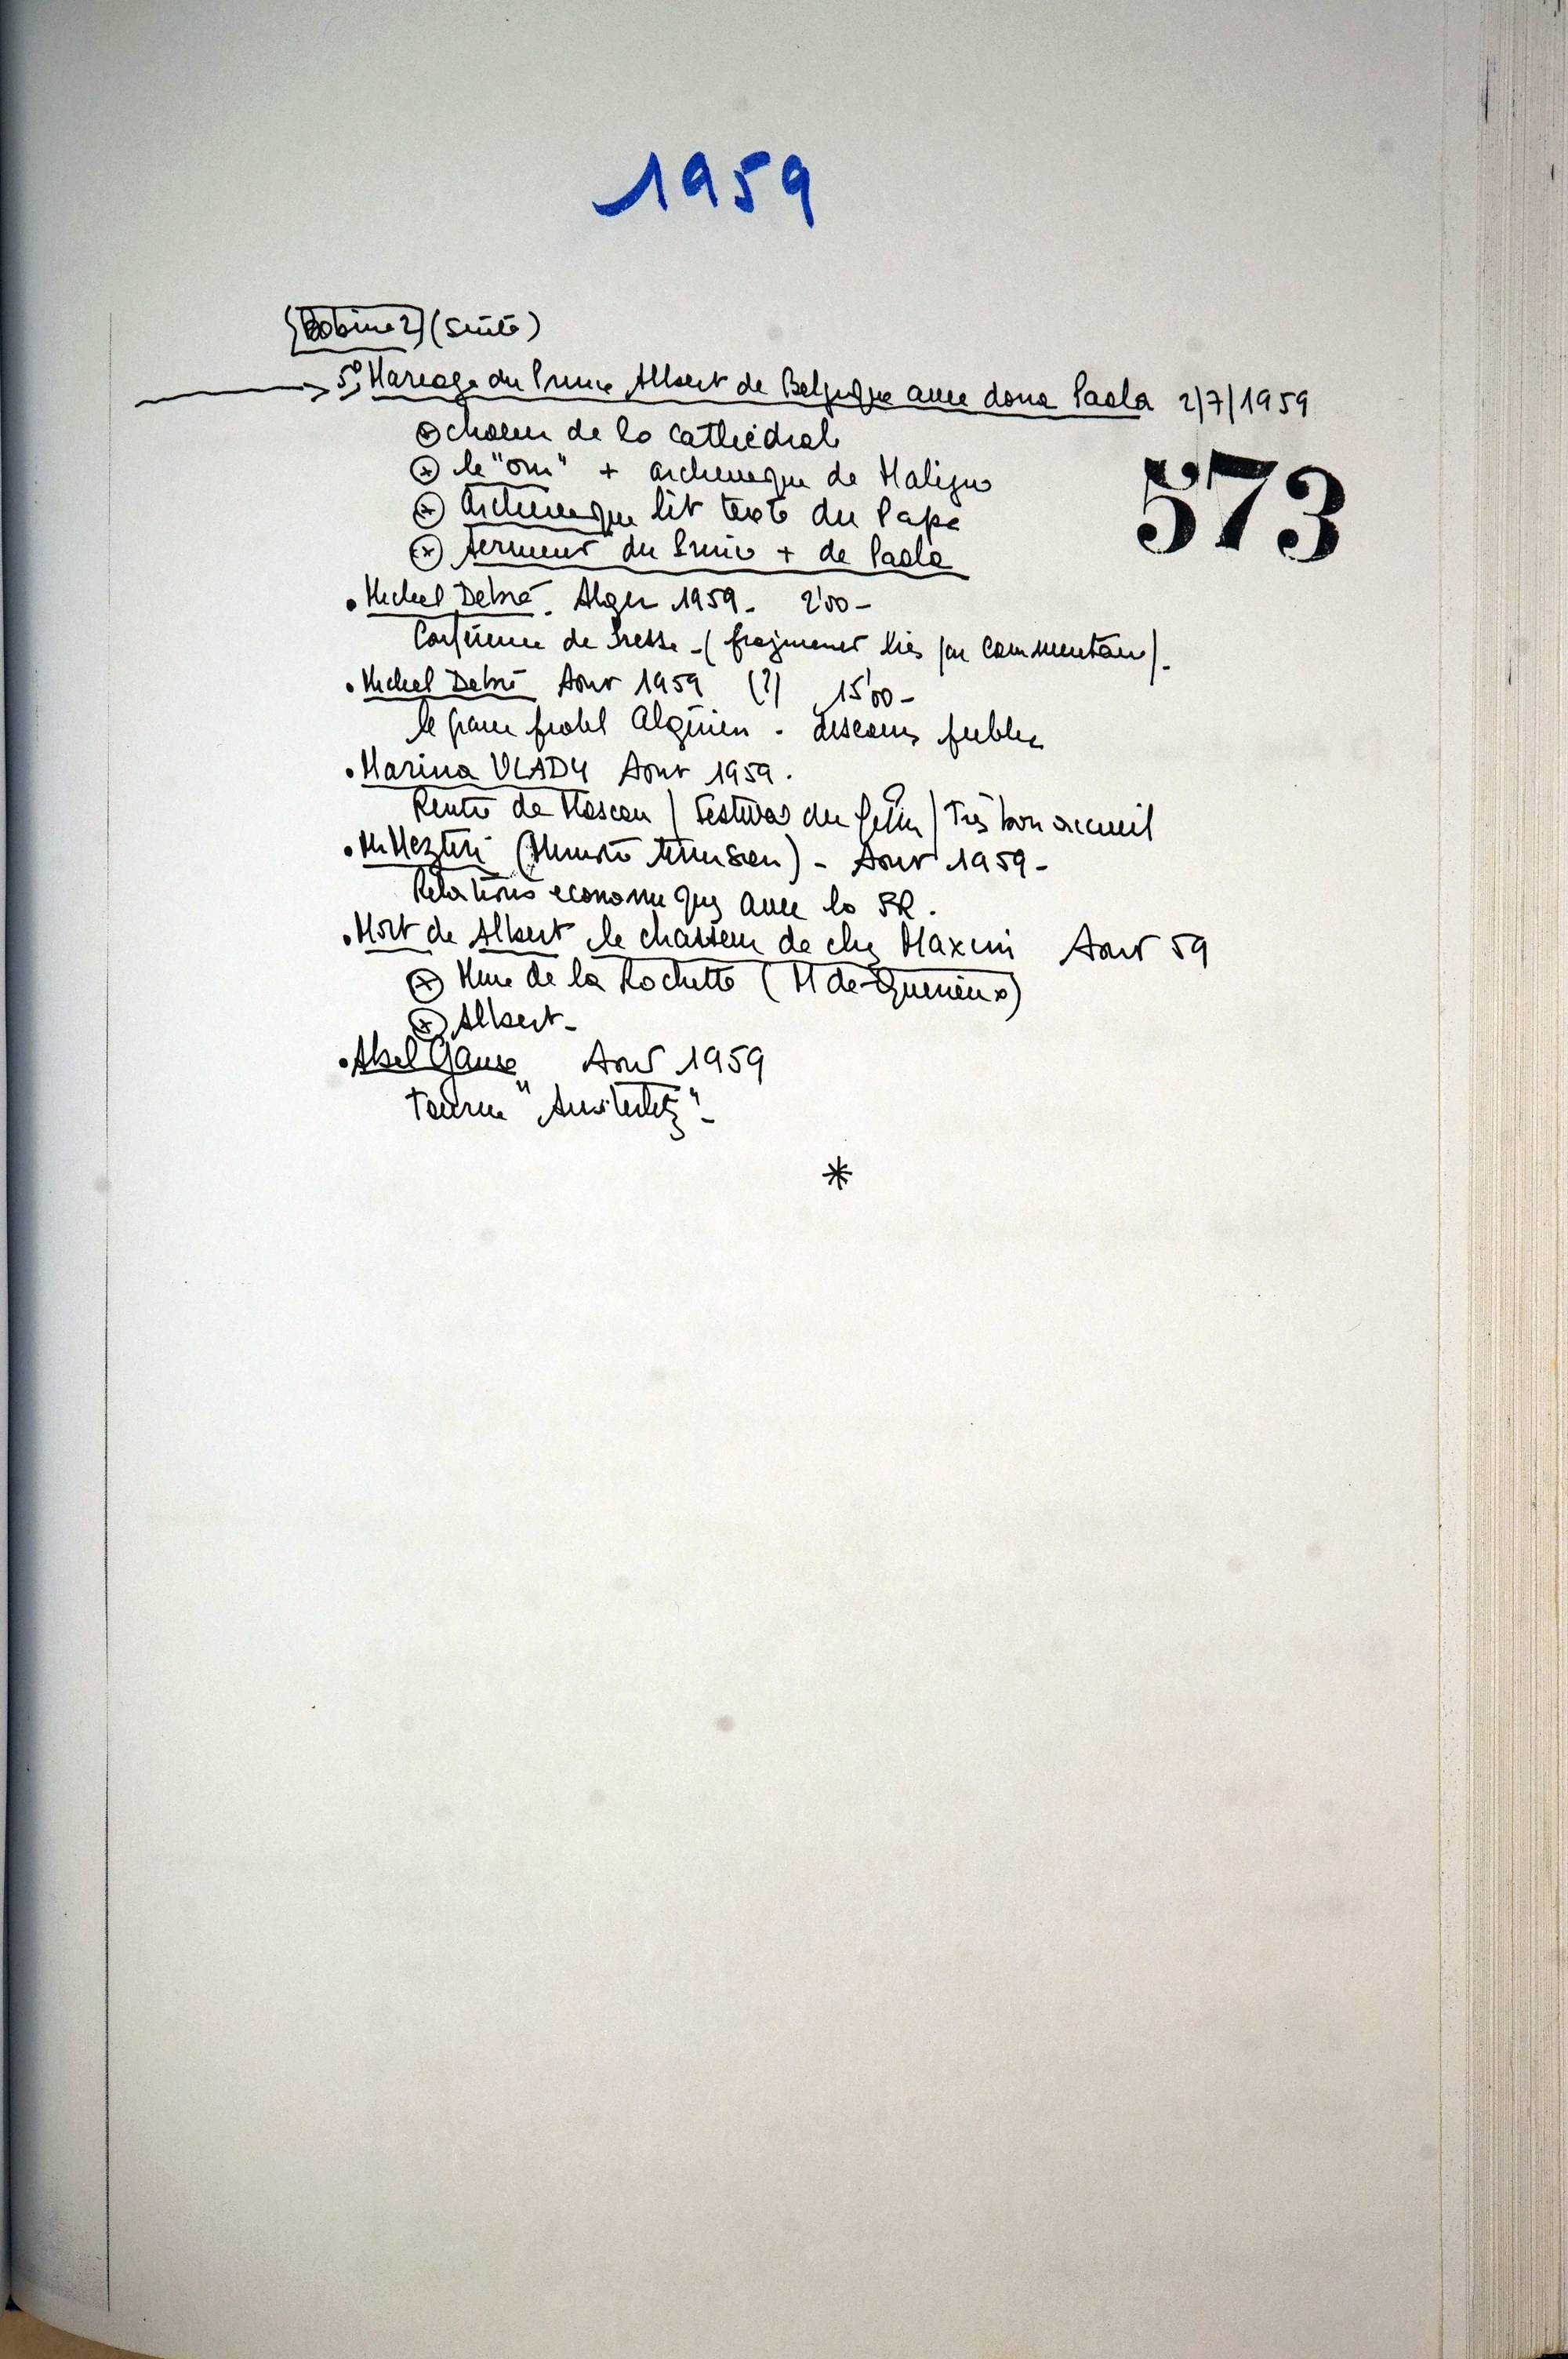 1959
Bobine 2 (suite)
5° Mariage du Prince Albert de Belgique avec dona Paola 2/7/1959
573
choeur de la cathédrale
le "oui" + archeveque de Malines
Archeveque lit texte du Pape
serment du Prince + de Paola
Michel Debré. Alger 1959. 2'00 -
Conférence de Presse - (fragments liés par commentaire).
Michel Debré Aout 1959 (?) 15'00 -
le probl Algérien - discours public
Marina VLADY Aout 1959.
Rentre de Moscou / Festival du film / Très bon accueil
(Ministre tunisien) - Aout 1959 -
Relations economiques avec la FR.
Mort de Albert le chasseur de chez Maxim Aout 59
Mme de la Rochette
Albert -
Abel Gance Aout 1959
Tourne "Austerlitz" -
*